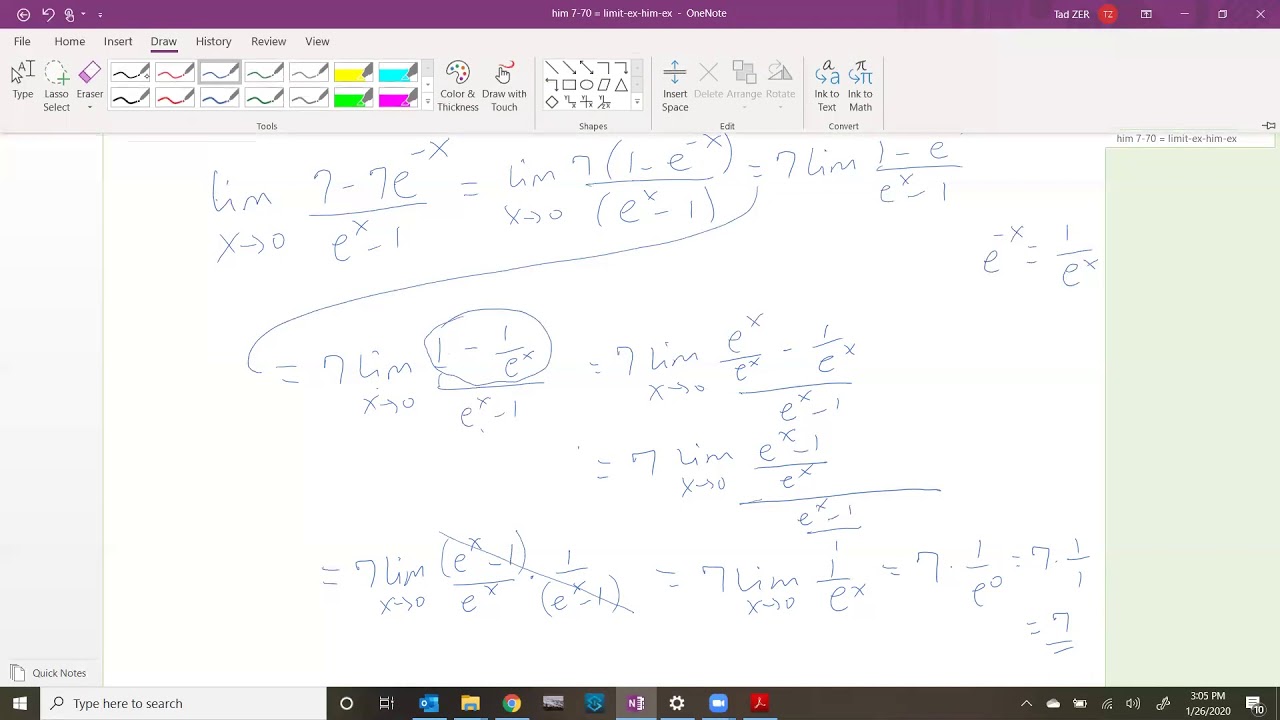 him 7-70 = limit-ex-him-ex - OneNote
Tad ZER TZ
File Home Insert Draw History Review View
Type Lasso Select Eraser Color & Thickness Draw with Touch Insert Space Delete Arrange Rotate Ink to Text Ink to Math
Tools Shapes Edit Convert
him 7-70 = limit-ex-him-ex
lim x→0 (7 - 7e^-x)/(e^x - 1) = lim x→0 7(1 - e^-x)/(e^x - 1) = 7 lim (1 - e)/(e^x - 1)
e^-x = 1/e^x
= 7 lim x→0 (1 - 1/e^x)/(e^x - 1) = 7 lim x→0 (e^x/e^x - 1/e^x)/(e^x - 1)
= 7 lim x→0 ((e^x - 1)/e^x)/((e^x - 1)/1)
= 7 lim x→0 (e^x - 1)/e^x · 1/(e^x - 1) = 7 lim x→0 1/e^x = 7 · 1/e^0 = 7 · 1/1
= 7
Quick Notes
Type here to search
3:05 PM
1/26/2020
10